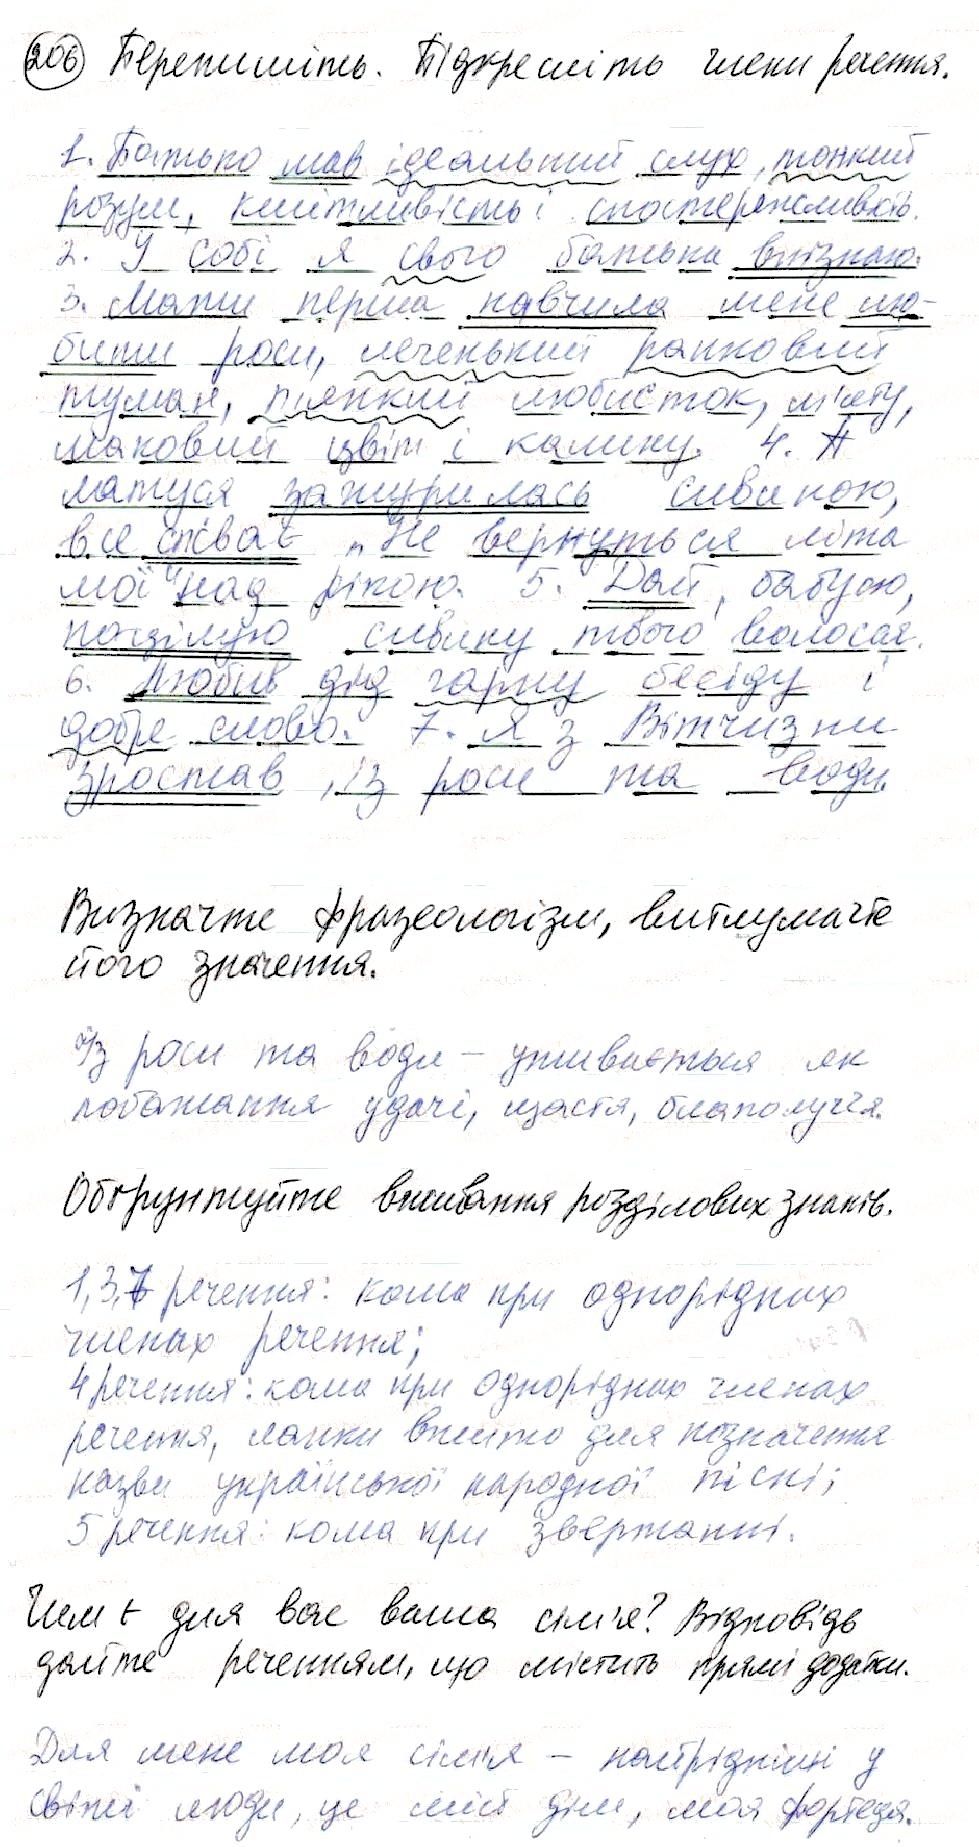 206 Перепишіть. Підкресліть члени речення.
1. Батько мав ідеальний слух, тонкий
розум, кмітливість і спостережливість.
2. У собі я свого батька впізнаю.
3. Мати перша навчила мене лю-
бити роси, легенький ранковий
туман, п'янкий любисток, м'яту,
маковий цвіт і калину. 4. А
матуся зажурилась сивиною,
все співає „Не вернуться літа
мої" над рікою. 5. Дай, бабусю,
поцілую сивину твого волосся.
6. Любив дід гарну бесіду і
добре слово. 7. Я з Вітчизни
зростав, із роси та води.
Визначте фразеологізм, витлумачте
його значення.
Із роси та води – уживається як
побажання удачі, щастя, благополуччя.
Обґрунтуйте вживання розділових знаків.
1,3,7 речення: кома при однорідних
членах речення;
4 речення: кома при однорідних членах
речення, лапки вжито для позначення
назви української народної пісні;
5 речення: кома при звертанні.
Чим є для вас ваша сім'я? Відповідь
дайте реченням, що містить прямі додатки.
Для мене моя сім'я – найрідніші у
світі люди, це мій дім, моя фортеця.